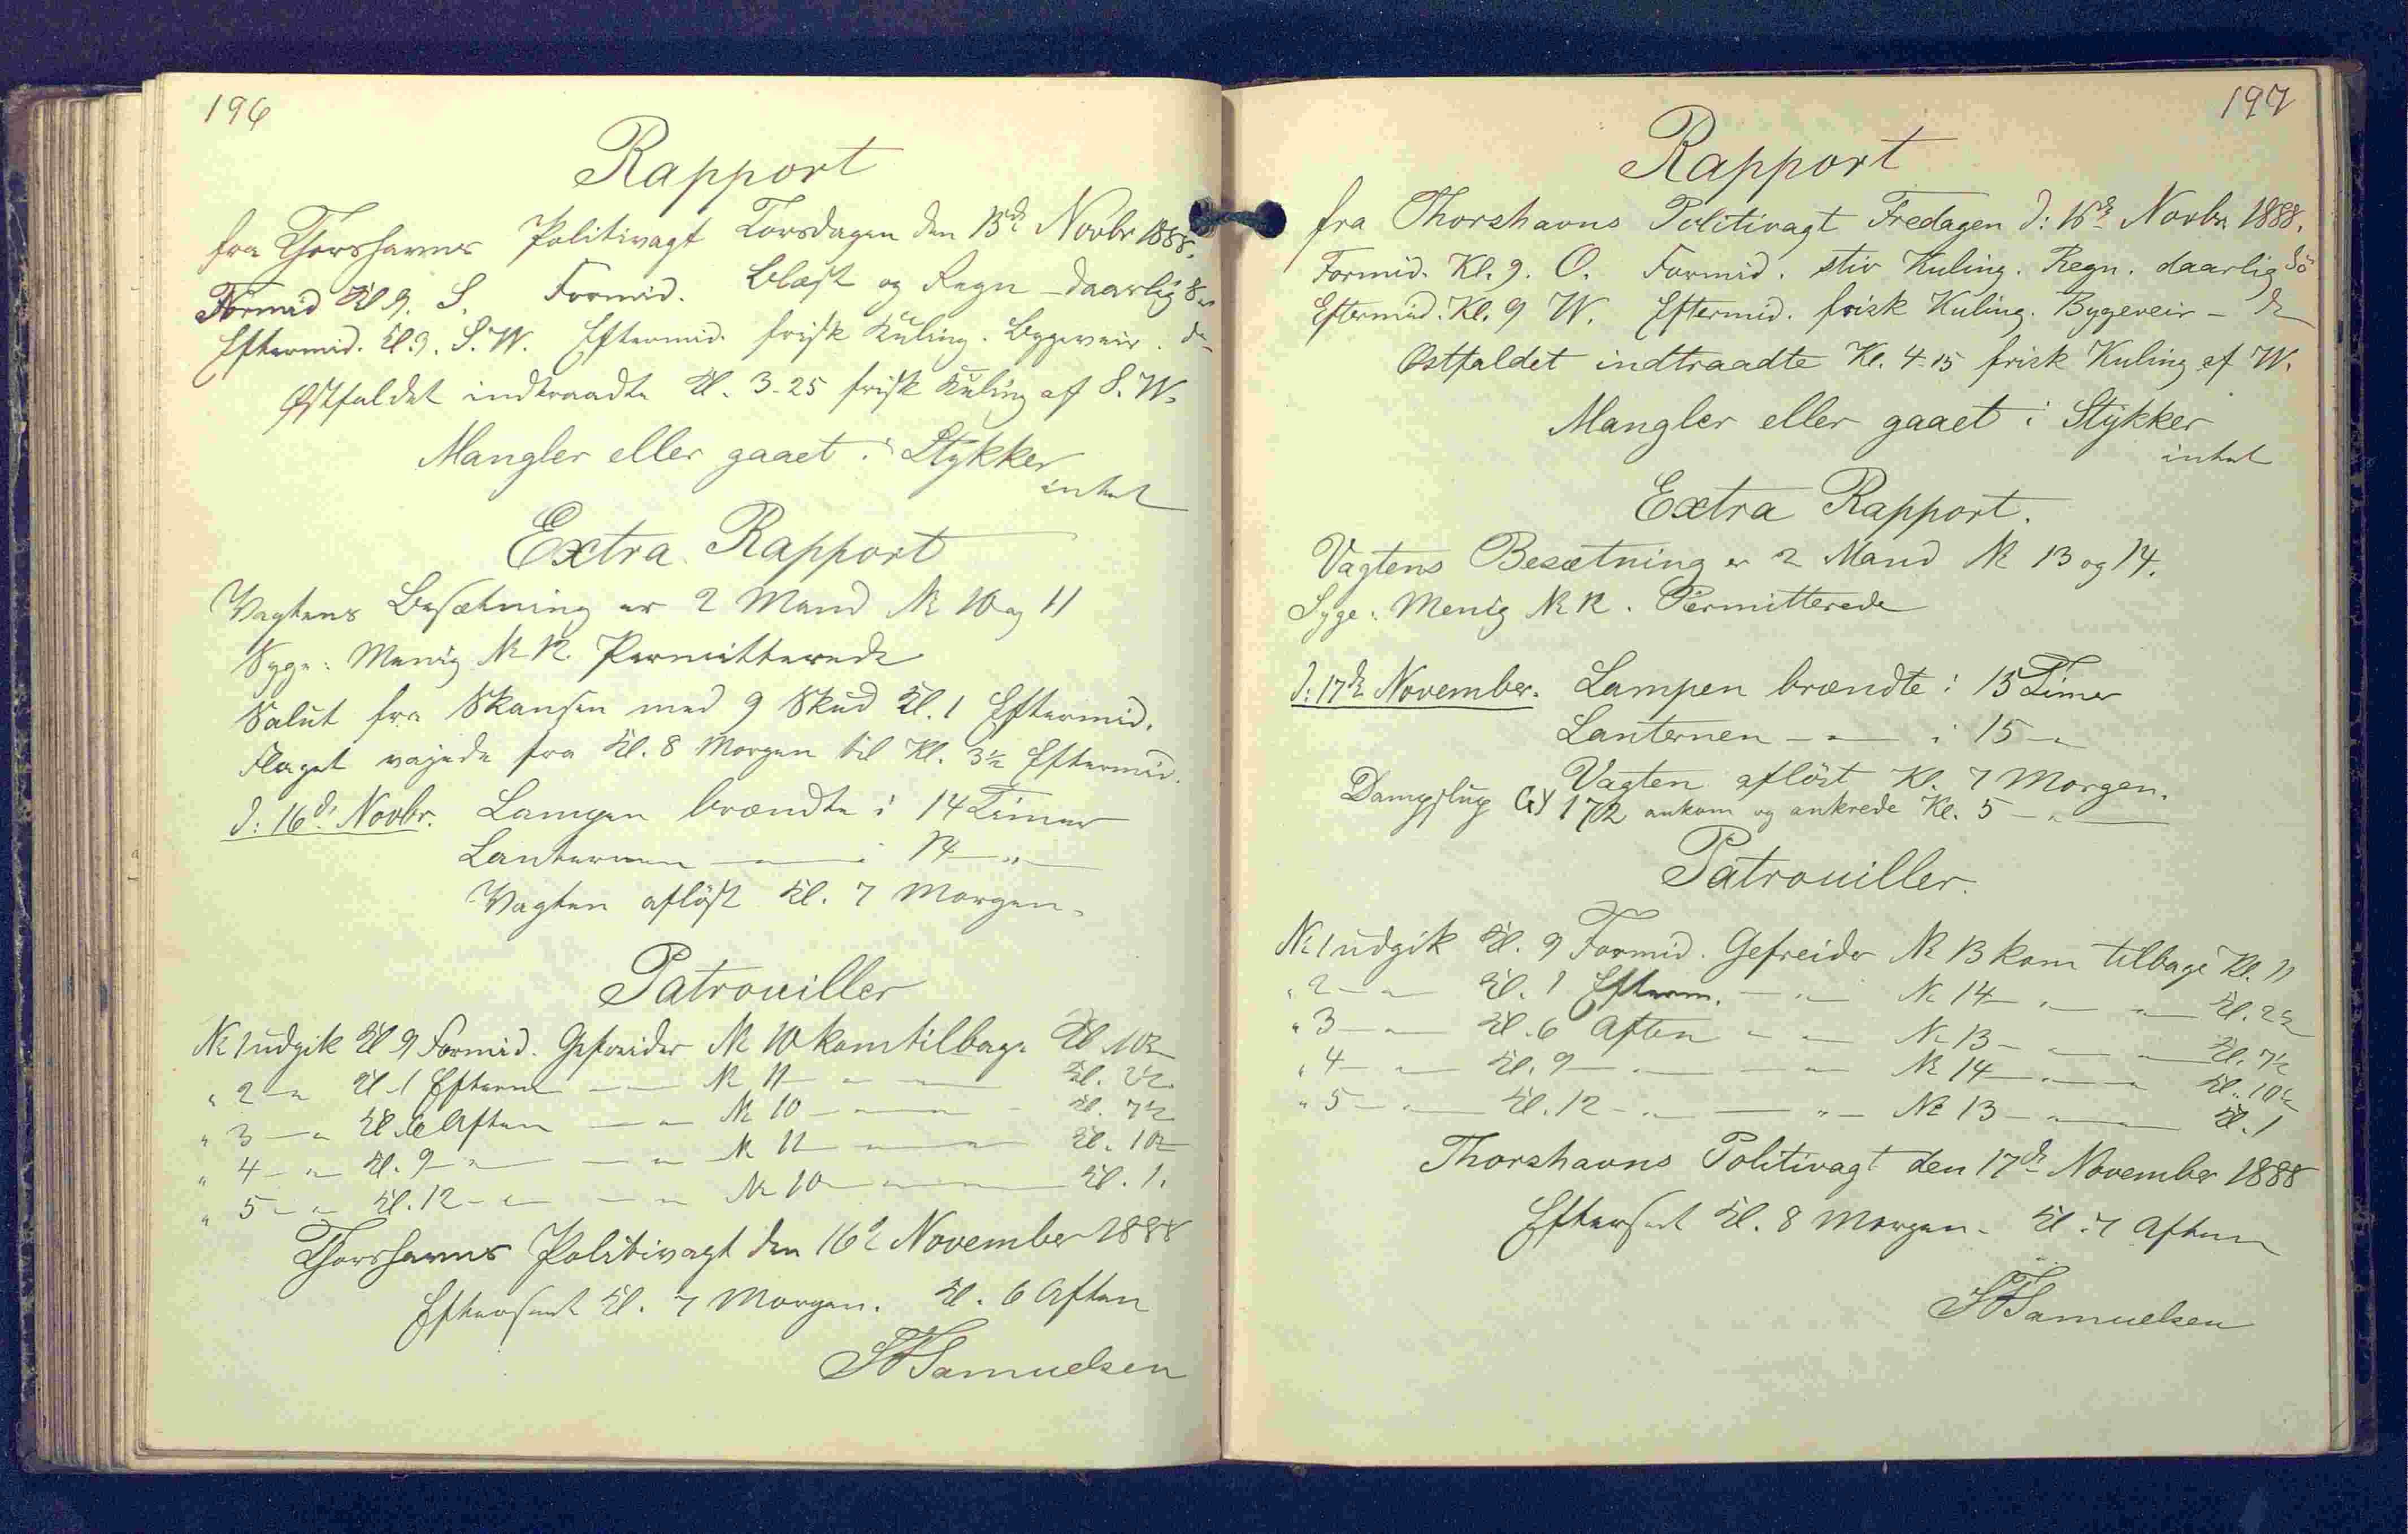 196
Rapport
fra Thorshavns Politivagt Torsdagen den 15de Novbr 1888.
Formid Kl 9. S. Formid. Blæst og Regn – daarlig Sø
Eftermid. Kl. 9. S. W. Eftermid. frisk Kuling. Bygeveir. do
Østfaldet indtraadte Kl. 3-25 frisk Kuling af S. W.
Mangler eller gaaet i Stykker
intet
Extra Rapport
Vagtens Besætning er 2 Mand № 10 og 11
Syge: Menig № 12. Permitterede
Salut fra Skansen med 9 Skud Kl. 1 Eftermid.
Flaget vajede fra Kl. 8 Morgen til Kl. 3½ Eftermid.
d: 16d Novbr. Lampen brændte i 14 Timer
Lanternen — " — i 14 — " —
Vagten afløst Kl. 7 Morgen.
Patrouiller
№ 1 udgik Kl 9 Formid. Gefreider № 10 kom tilbage Kl. 10½
" 2 — " Kl 1 Efterm — " — № 11 — " — " — Kl. 2½
" 3 — " Kl 6 Aften — " — № 10 — " — " — Kl. 7½
" 4 — " — Kl. 9 — " — — " — № 11 — " — " — Kl. 10½
" 5 — " — Kl. 12 — " — — " — № 10 — " — " — Kl. 1.
Thorshavns Politivagt den 16d November 1888
Efterseet Kl. 7 Morgen. Kl. 6 Aften
Samuelsen
197
Rapport
fra Thorshavns Politivagt Fredagen d: 16de Novbr 1888.
Formid. Kl. 9. O. Formid. stiv Kuling. Regn. daarlig Sö
Eftermid. Kl. 9 W. Eftermid. frisk Kuling. Bygeveir – do
Østfaldet indtraadte Kl. 4-15 frisk Kuling af W.
Mangler eller gaaet i Stykker
intet
Extra Rapport.
Vagtens Besætning er 2 Mand № 13 og 14.
Syge: Menig № 12. Permitterede
d: 17de November. Lampen brændte i 15 Timer
Lanternen — " — i 15 — "
Vagten aflöst Kl. 7 Morgen.
GY 172 ankom og ankrede Kl. 5 — " —
Patrouiller.
№ 1 udgik Kl. 9 Formid. Gefreider № 13 kom tilbage Kl. 11
" 2 — " — Kl. 1 Efterm. — " — № 14 — " — " — Kl. 2½
" 3 — " — Kl. 6 Aften — " — № 13 — " — " — Kl. 7½
" 4 — " — Kl. 9 — " — — " — № 14 — " — " Kl. 10½
" 5 — " — Kl. 12 — " — — " — № 13 — " — " — Kl. 1
Thorshavns Politivagt den 17de November 1888
Efterseet Kl. 8 Morgen. Kl. 7 Aften
Samuelsen